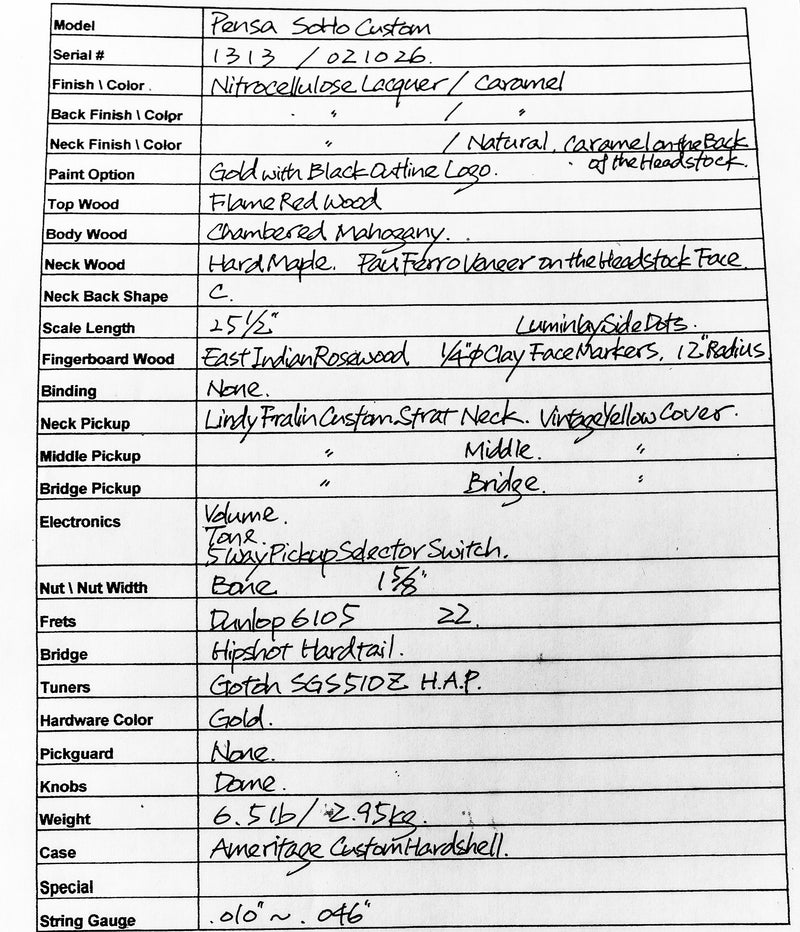 Model Pensa SoHo Custom
Serial # 1313 / 021026.
Finish \ Color Nitrocellulose Lacquer / Caramel
Back Finish \ Color " / "
Neck Finish \ Color " / Natural, Caramel on the Back
of the Headstock.
Paint Option Gold with Black Outline Logo.
Top Wood Flame Red Wood
Body Wood Chambered Mahogany.
Neck Wood Hard Maple. Pau Ferro Veneer on the Headstock Face
Neck Back Shape C.
Scale Length 25 1/2" Luminlay Side Dots.
Fingerboard Wood East Indian Rosewood 1/4"φ Clay Face Markers, 12" Radius
Binding None.
Neck Pickup Lindy Fralin Custom Strat Neck. Vintage Yellow Cover.
Middle Pickup " Middle. "
Bridge Pickup " Bridge. "
Electronics Volume.
Tone.
5 Way Pickup Selector Switch.
Nut \ Nut Width Bone 1 5/8"
Frets Dunlop 6105 22.
Bridge Hipshot Hardtail.
Tuners Gotoh SGS510Z H.A.P.
Hardware Color Gold.
Pickguard None.
Knobs Dome.
Weight 6.5 lb / 2.95kg.
Case Ameritage Custom Hardshell.
Special
String Gauge .010" ~ .046"